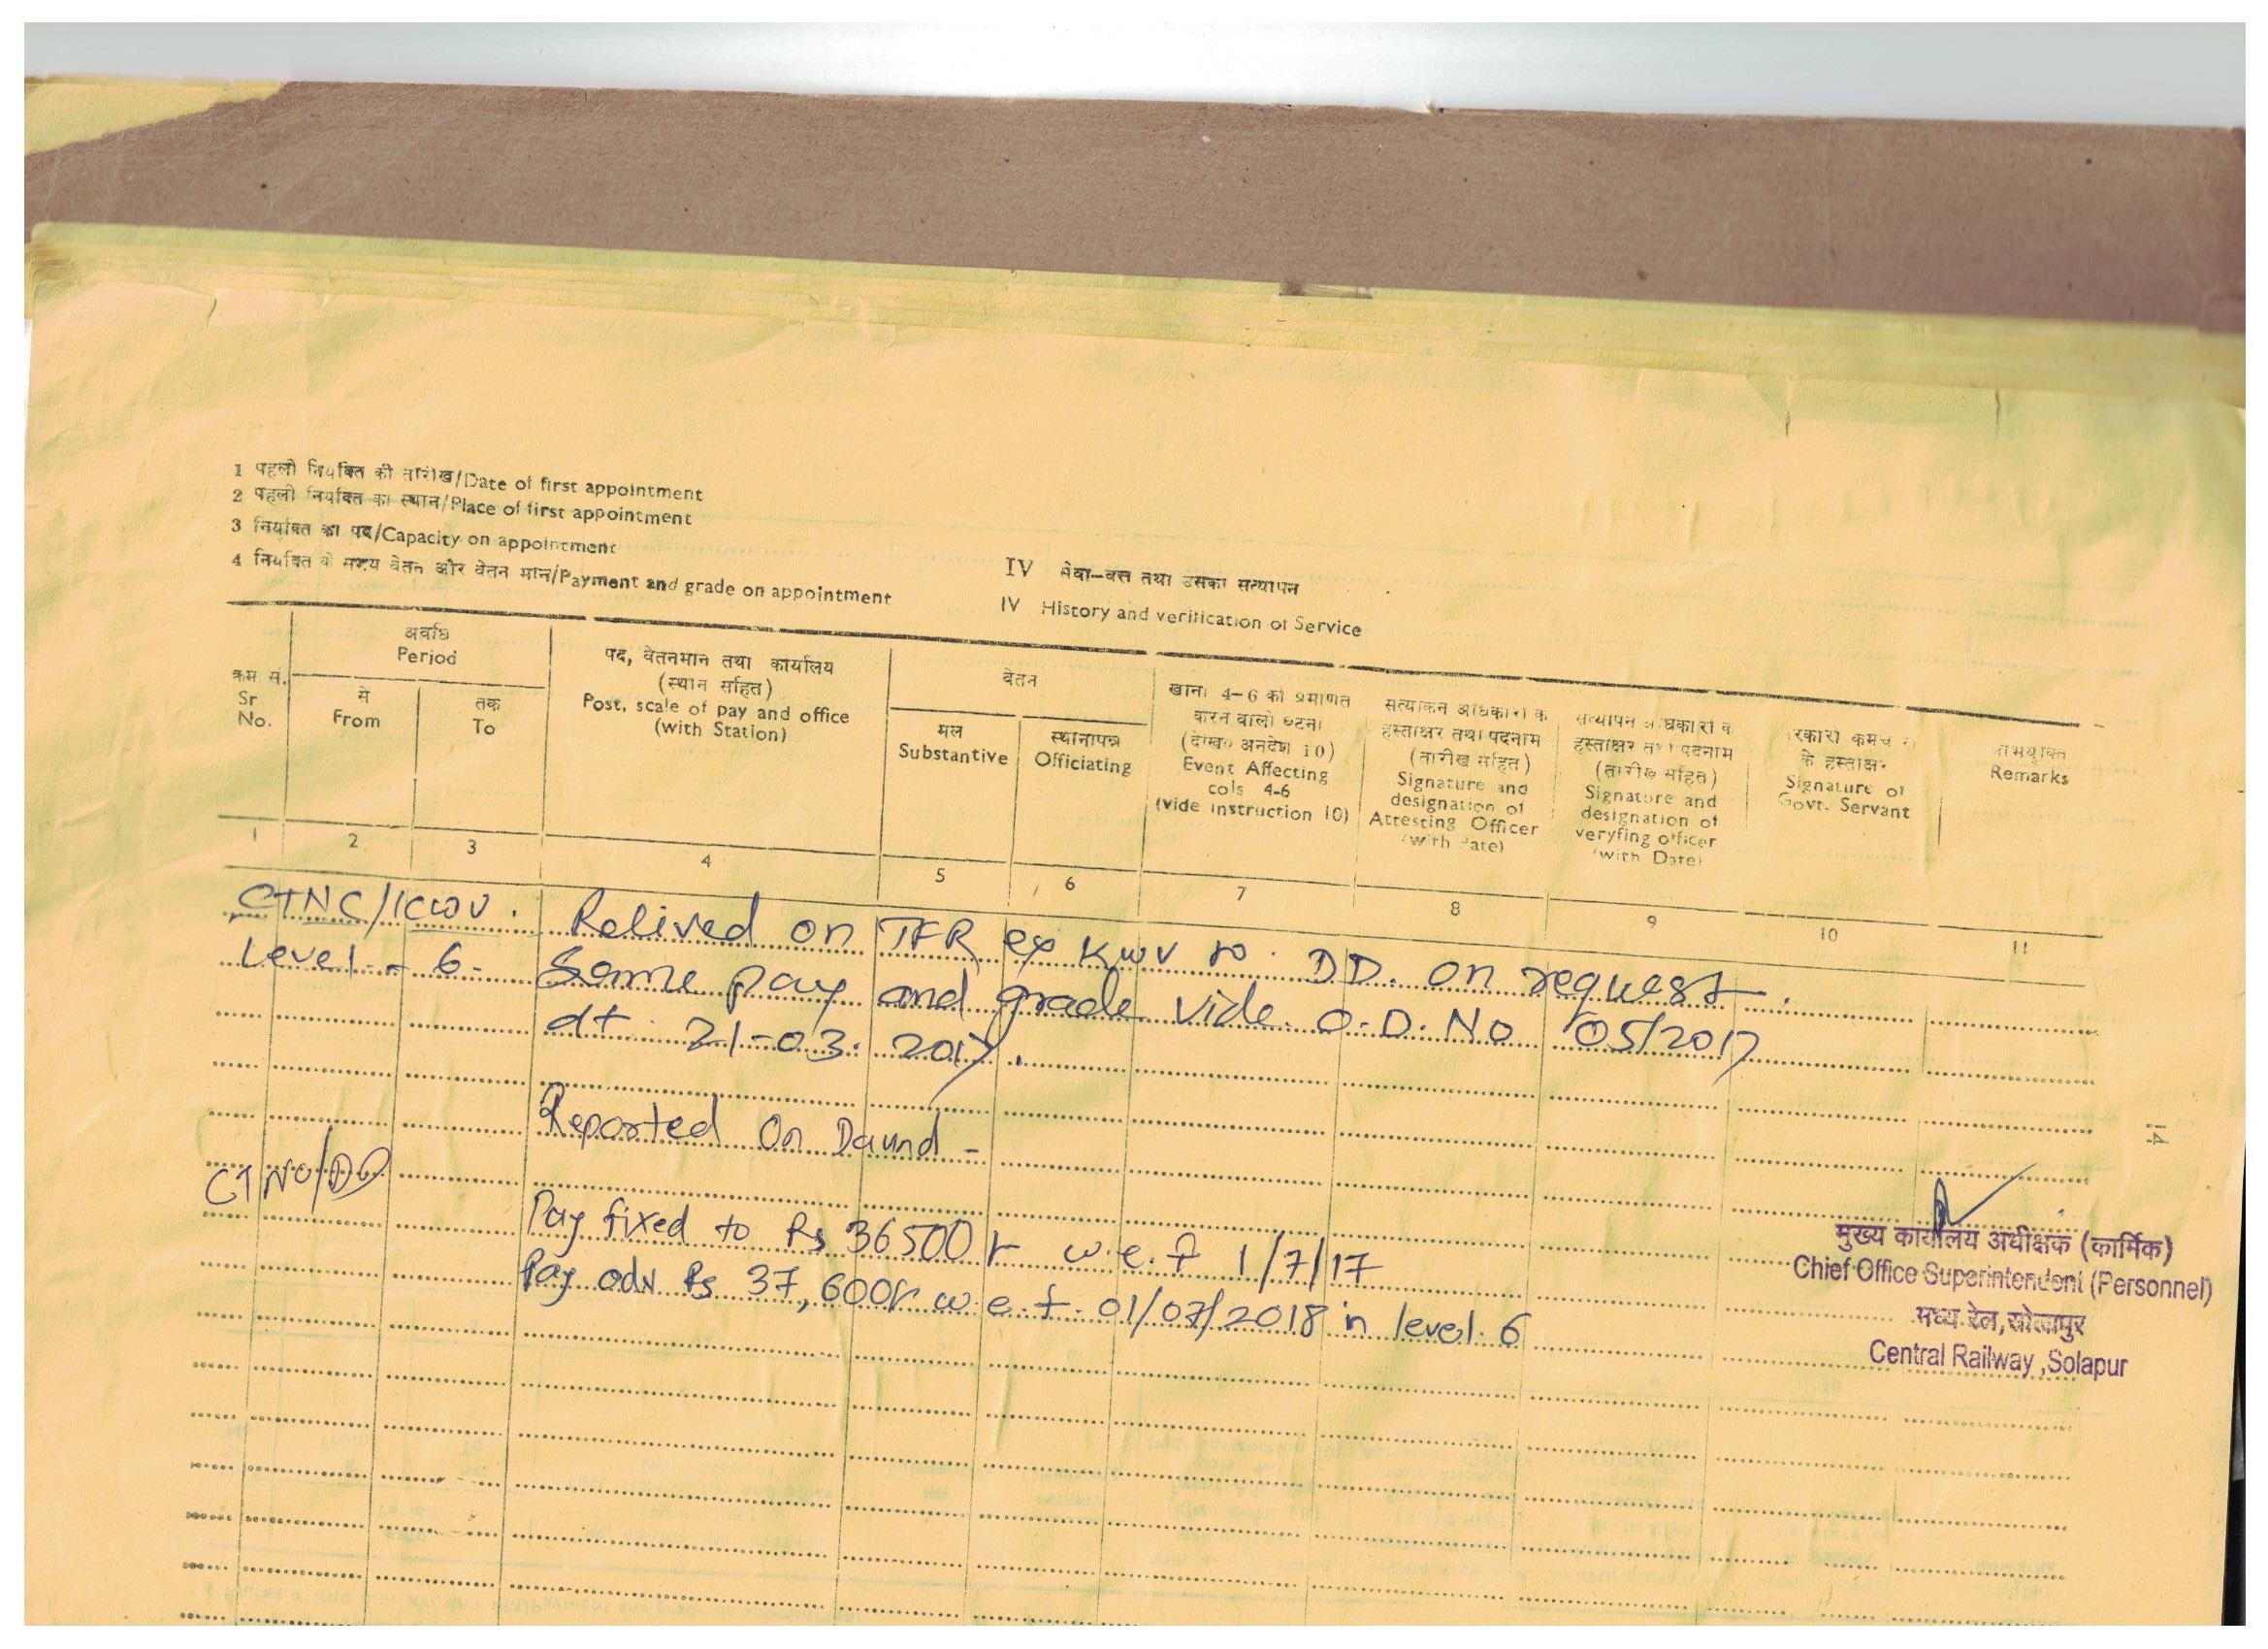 1 पहली नियुक्ति की तारीख/Date of first appointment
2 पहली नियुक्ति का स्थान/Place of first appointment
3 नियुक्ति का पद/Capacity on appointment
4 नियुक्ति के समय वेतन और वेतन मान/Payment and grade on appointment
IV सेवा-वृत्त तथा उसका सत्यापन
IV History and verification of Service
क्रम सं.
Sr
No.
अवधि
Period
से
From
तक
To
पद, वेतनमान तथा कार्यालय
(स्थान सहित)
Post, scale of pay and office
(with Station)
वेतन
मूल
Substantive
स्थानापन्न
Officiating
खाना 4-6 को प्रमाणित
करने वाली घटना
(देखिए अनुदेश 10)
Event Affecting
cols 4-6
(vide instruction 10)
सत्यांकन अधिकारी के
हस्ताक्षर तथा पदनाम
(तारीख सहित)
Signature and
designation of
Attesting Officer
(with Date)
सत्यापन अधिकारी के
हस्ताक्षर तथा पदनाम
(तारीख सहित)
Signature and
designation of
veryfing officer
(with Date)
सरकारी कर्मचारी
के हस्ताक्षर
Signature of
Govt. Servant
Remarks
1 2 3 4 5 6 7 8 9 10 11
CTNC/KWV. Relived on TFR ex KWV to DD. on request.
Level - 6- Same pay and grade vide O.D. No 05/2017
dt 21-03-2017.
Reported On Daund -
CTNC/DD
Pay fixed to Rs 36500/- w.e.f 1/7/17
Pay adv Rs 37,600/- w.e.f. 01/07/2018 in level 6
14
मुख्य कार्यालय अधीक्षक (कार्मिक)
Chief Office Superintendent (Personnel)
मध्य रेल,सोलापुर
Central Railway ,Solapur